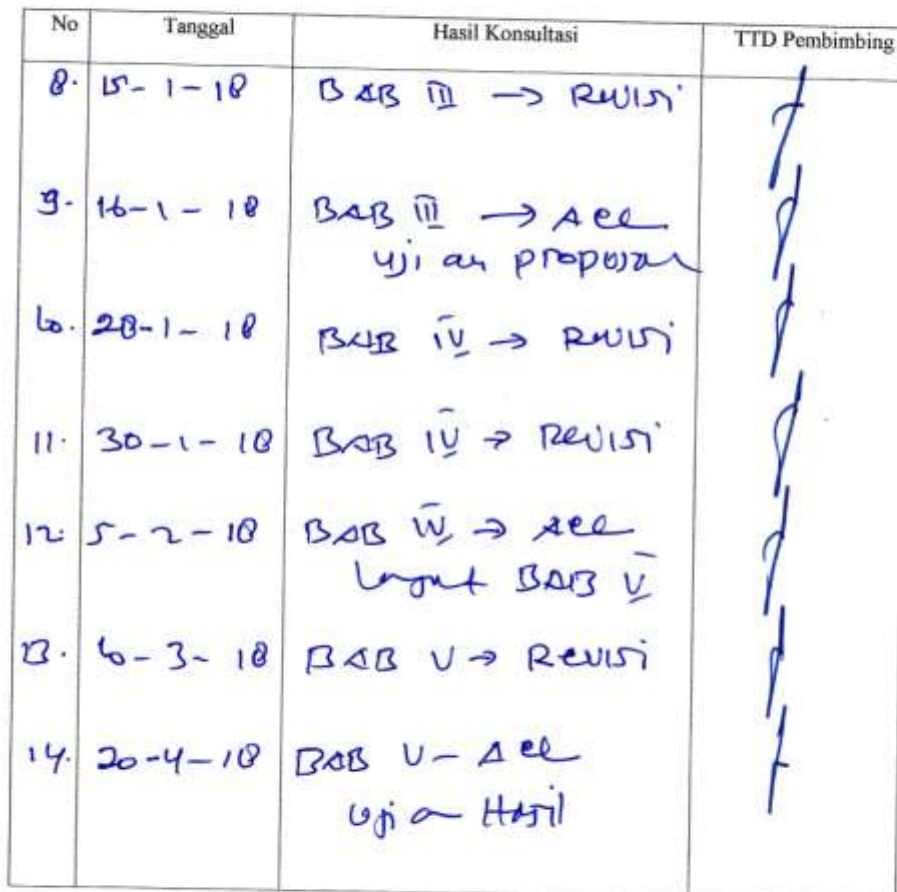 No Tanggal Hasil Konsultasi TTD Pembimbing
8. 15-1-18 BAB III → Revisi
9. 16-1-18 BAB III → Acc
ujian proposal
10. 28-1-18 BAB IV → Revisi
11. 30-1-18 BAB IV → Revisi
12. 5-2-18 BAB IV → Acc
Lanjut BAB V
13. 10-3-18 BAB V → Revisi
14. 20-4-18 BAB V - Acc
Ujian Hasil